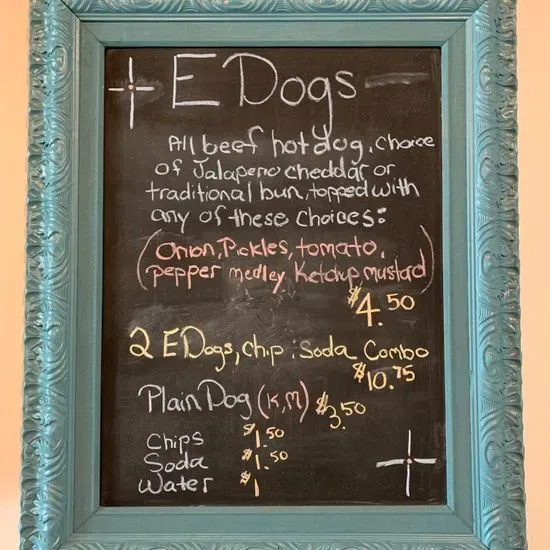 E Dogs
All beef hot dog, choice
of Jalapeno cheddar or
traditional bun, topped with
any of these choices:
(Onion, Pickles, tomato,
pepper medley, Ketchup, mustard)
$4.50
2 E Dogs, chip; Soda Combo
$10.75
Plain Dog (K,M) $3.50
Chips $1.50
Soda $1.50
Water $1